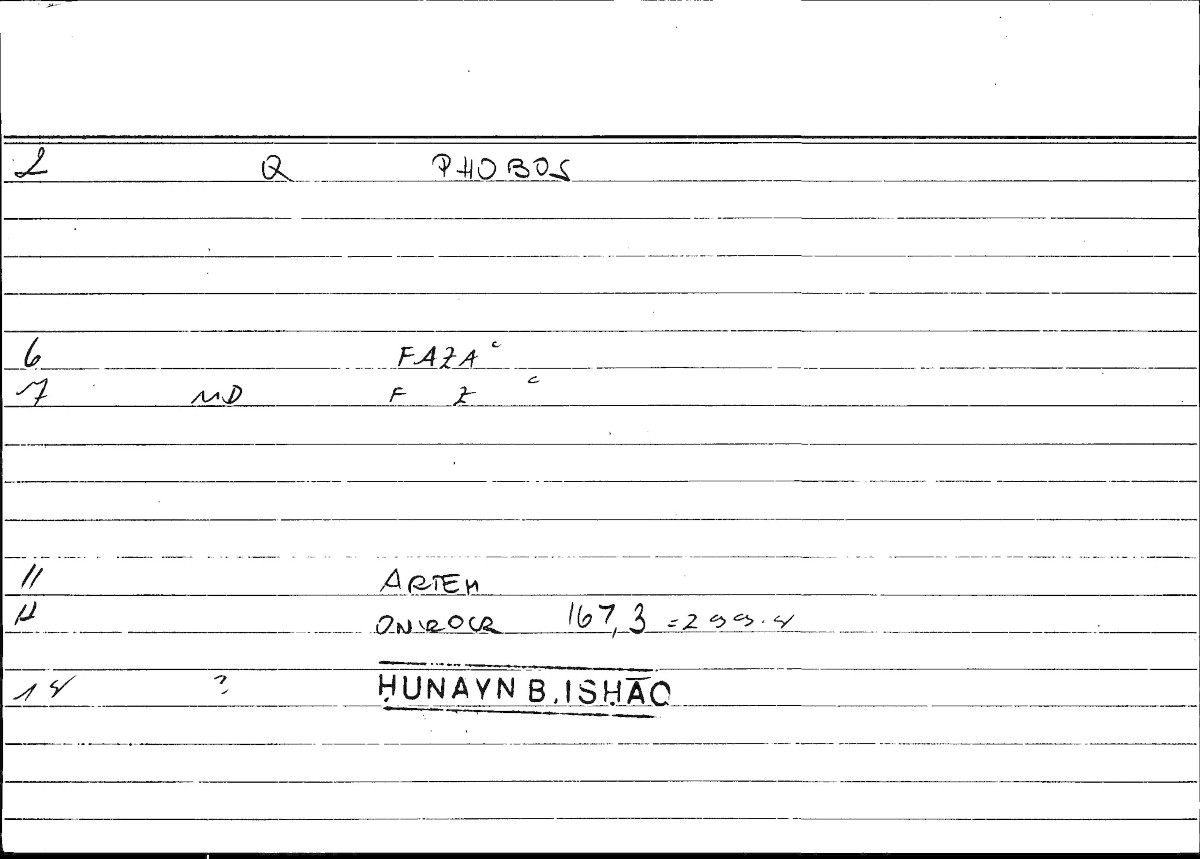 2 Q PHOBOS
6 FAZAʿ
7 MD F Z ʿ
11 ARTEM
12 ONIROCR 167,3 =299.4
14 ? ḤUNAYN B. ISḤĀQ